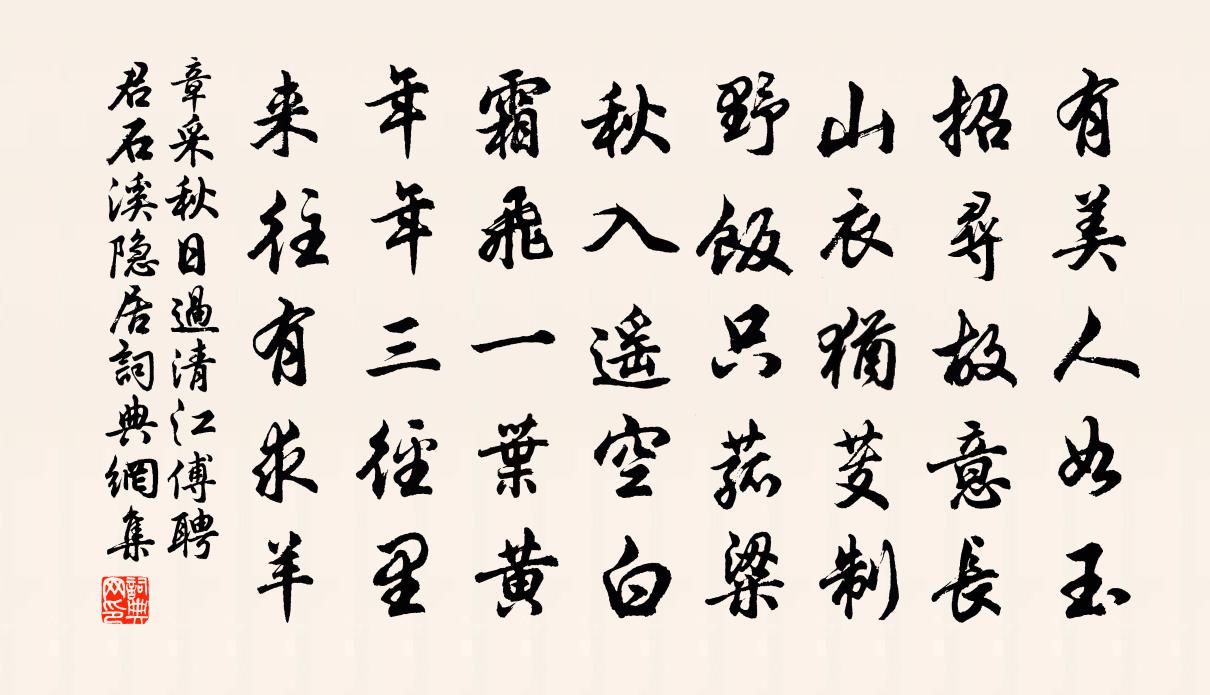 有美人如玉
招尋故意長
山衣猶芰制
野飯只菰粱
秋入遥空白
霜飛一葉黄
年年三徑里
来往有求羊
章采秋日過清江傅聘
君石溪隐居詞典網集